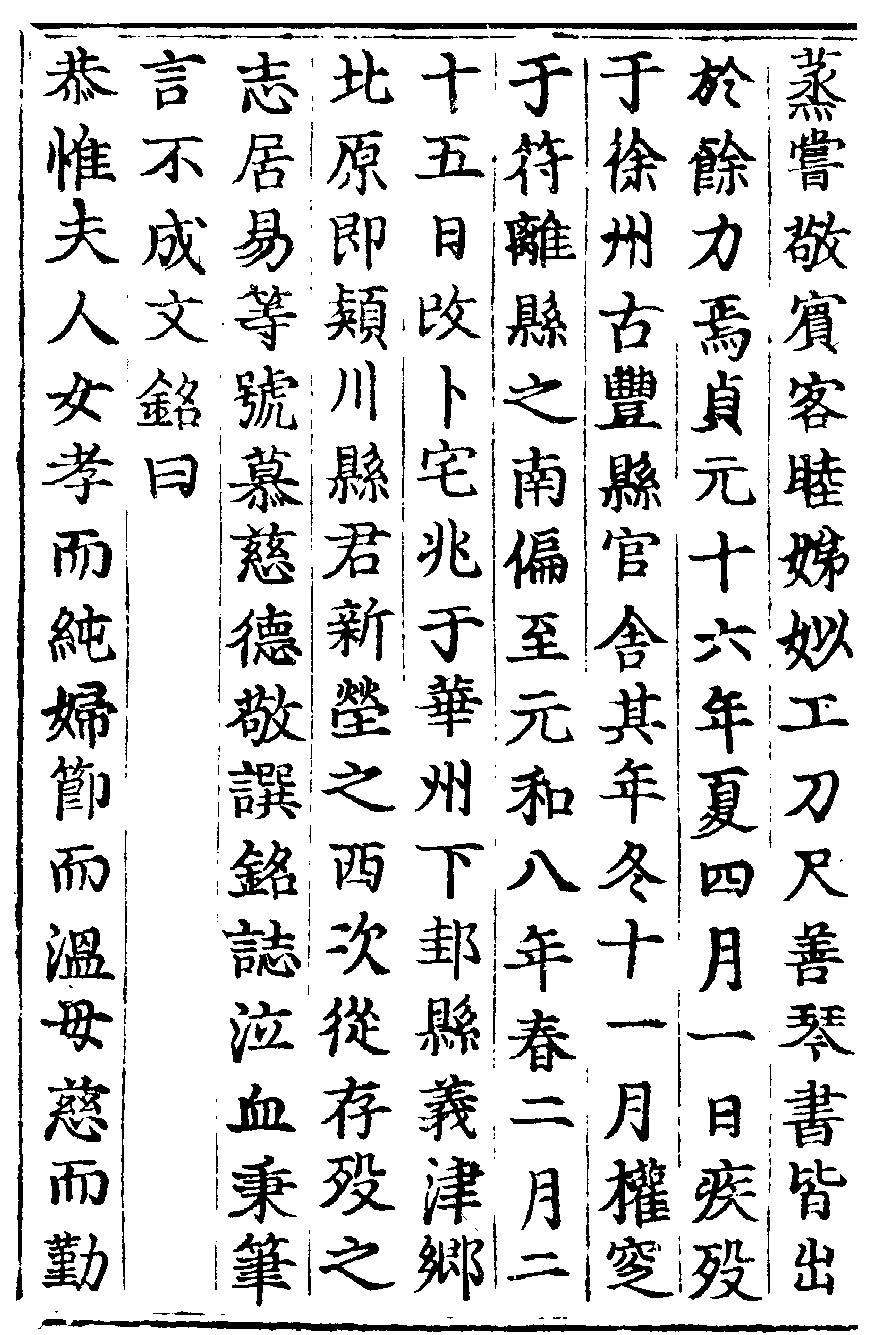 蒸嘗敬賓客睦娣姒工刀尺善琴書皆出
於餘力焉貞元十六年夏四月一日疾歿
于徐州古豐縣官舍其年冬十一月權窆
于符離縣之南偏至元和八年春二月二
十五日改卜宅兆于華州下邽縣義津鄉
北原即潁川縣君新塋之西次從存歿之
志居易等號慕慈德敬譔銘誌泣血秉筆
言不成文銘曰
恭惟夫人女孝而純婦節而溫母慈而勤